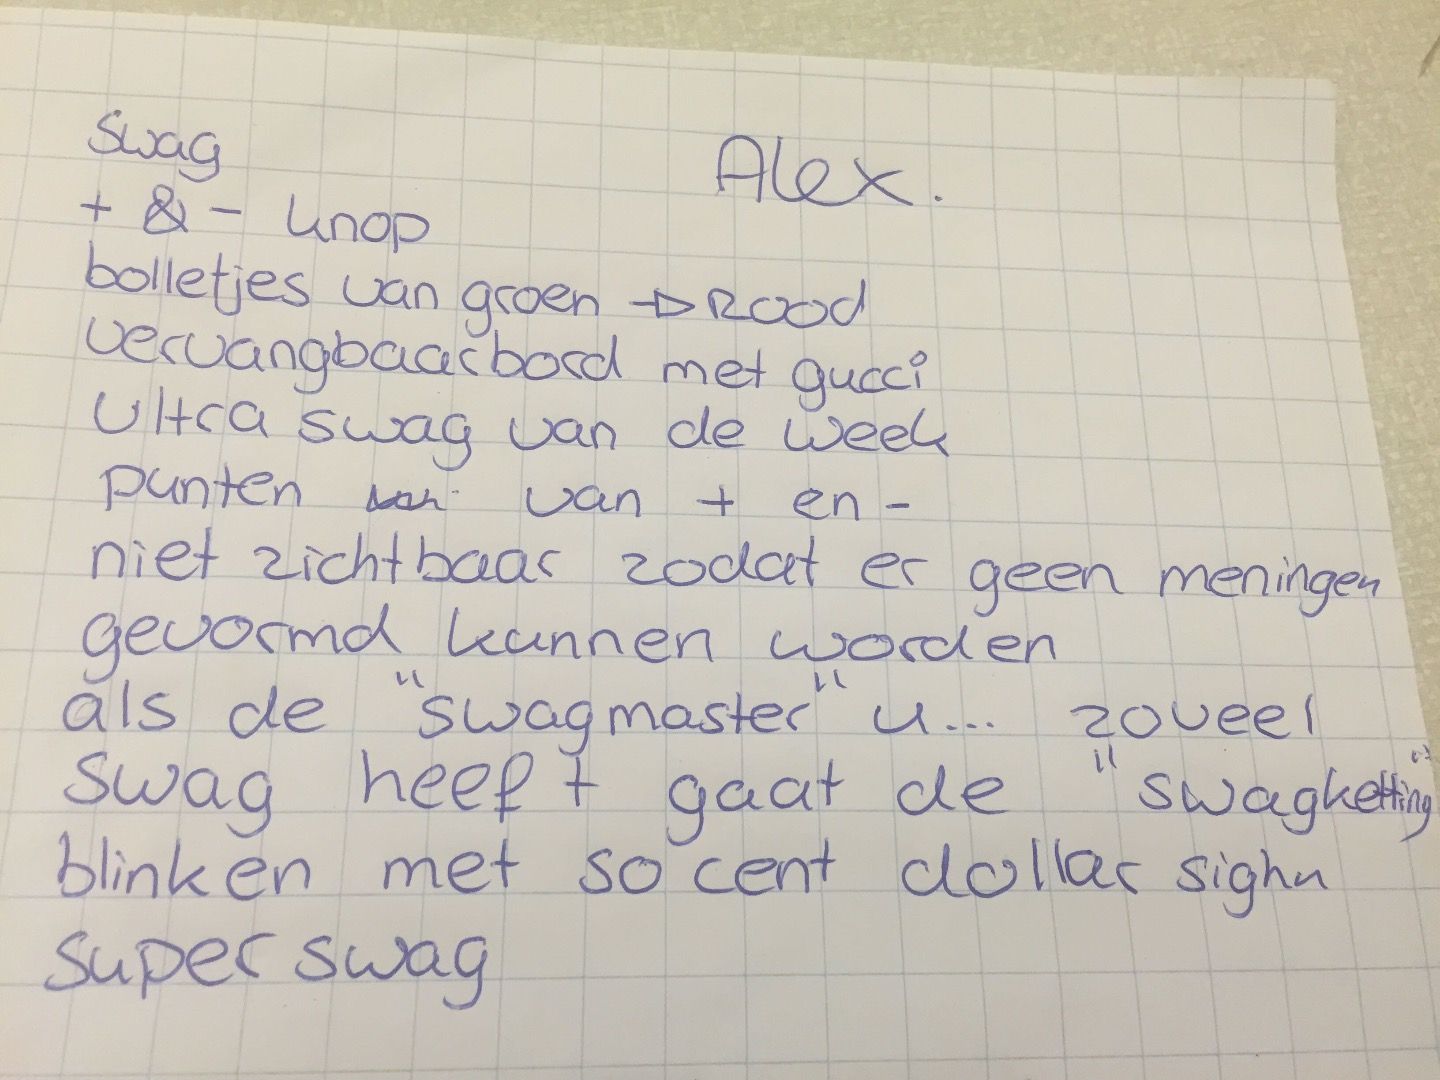 Swag
Alex.
+ & - knop
bolletjes van groen → Rood
vervangbaarbord met gucci
Ultra swag van de week
punten van + en -
niet zichtbaar zodat er geen meningen
gevormd kunnen worden
als de "swagmaster" u... zoveel
swag heeft gaat de "swagketting"
blinken met 50 cent dollar sighn
super swag